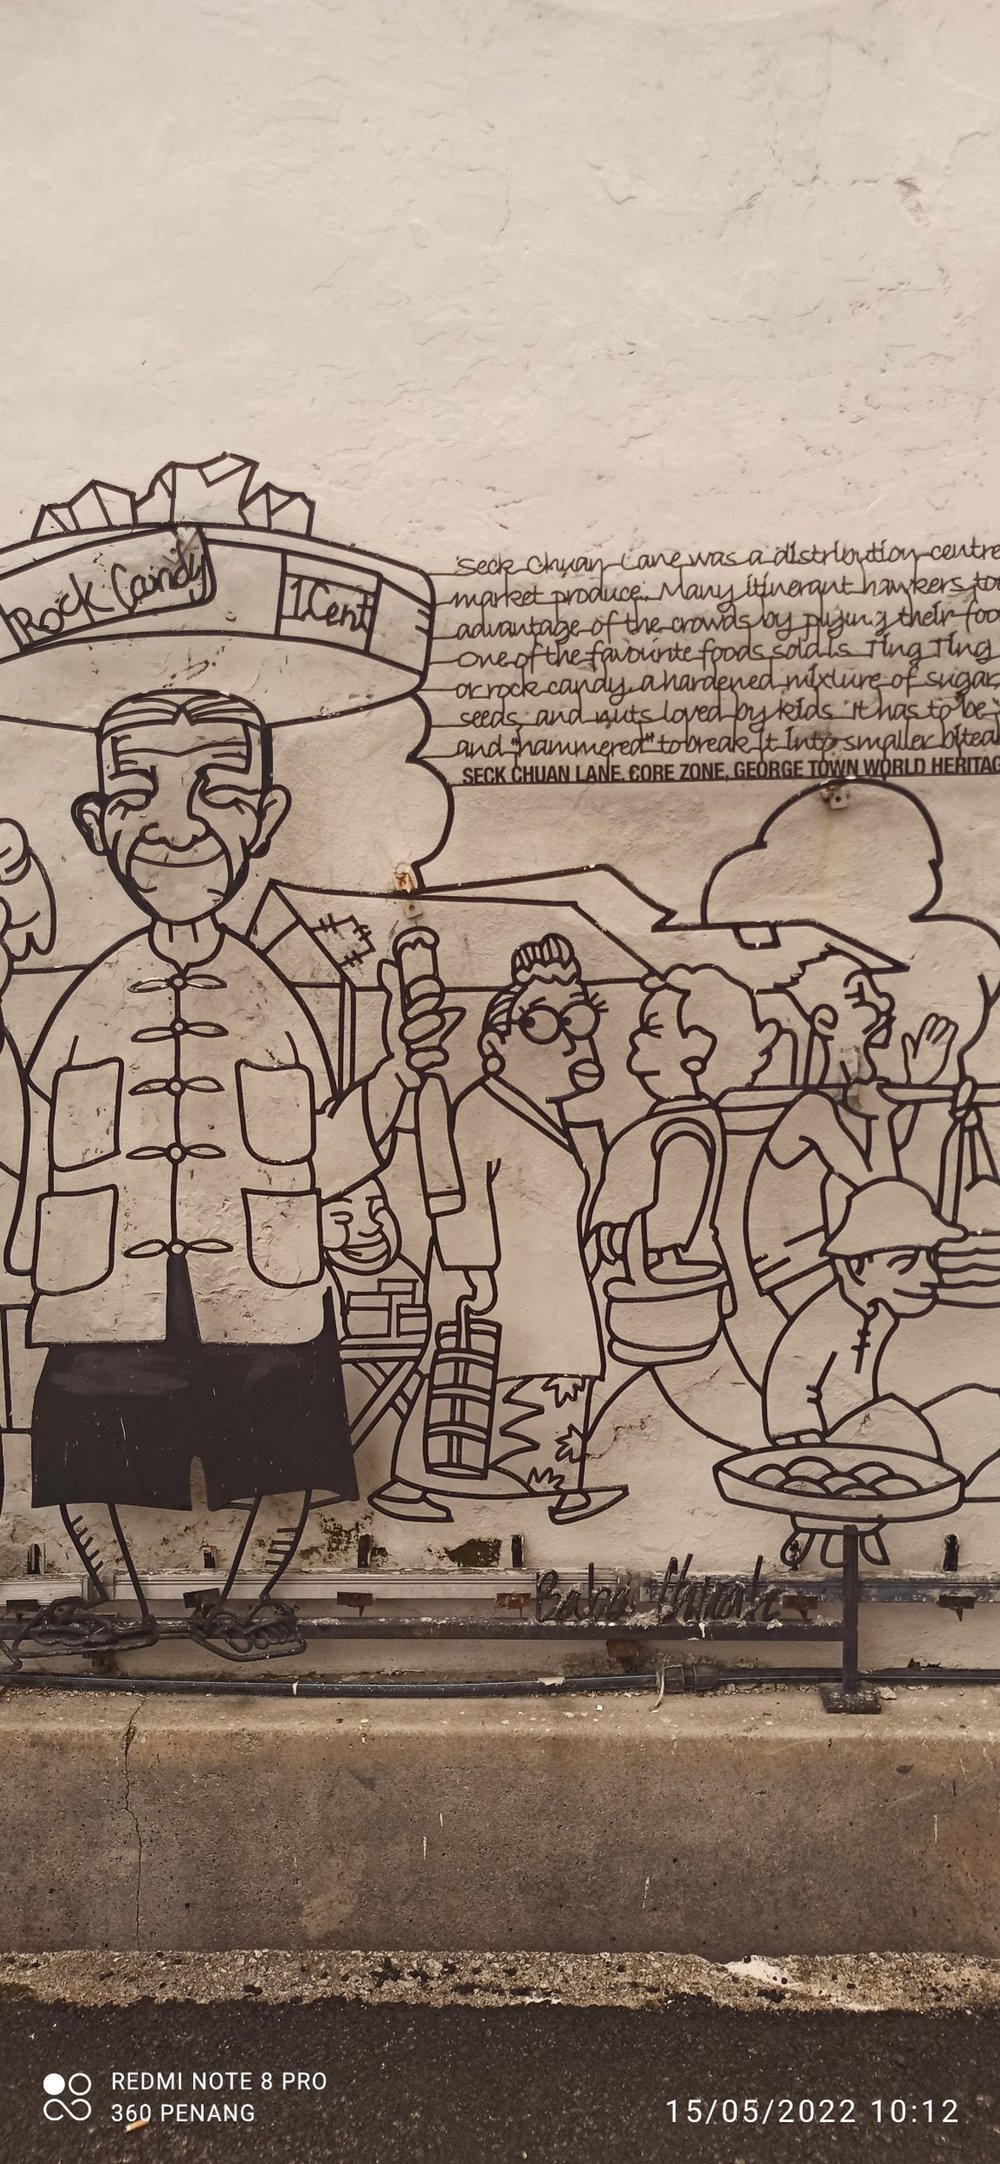 Rock Candy
1 Cent
Seck Chuan Lane was a distribution centre
market produce. Many itinerant hawkers to
advantage of the crowds by plying their foo
One of the favourite foods sold is Ting Ting
or rock candy, a hardened mixture of sugar,
seeds, and nuts loved by kids. It has to be
and "hammered" to break it into smaller bitea
SECK CHUAN LANE, CORE ZONE, GEORGE TOWN WORLD HERITAG
Baba
REDMI NOTE 8 PRO
360 PENANG
15/05/2022 10:12